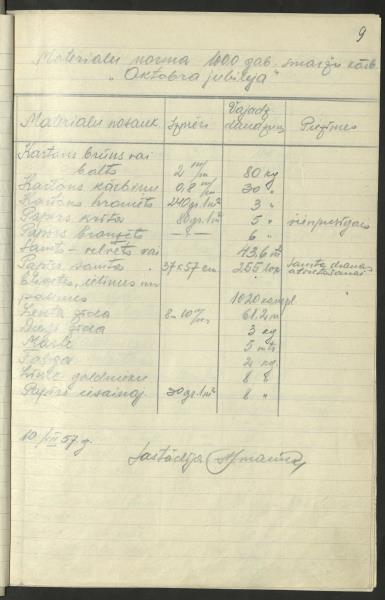 9
Materialu norma 1000 gab. smaržu kārb.
"Oktobra jubileja"
Materialu nosauk. Izmēri Vajadz. daudzums Piezīmes
Kartons brūns vai
balts 2 m/m 80 kg
Kartons kārbiņu 0,8 m/m 30 "
Kartons bromēts 240 gr. 1 m² 3 "
Papīrs krīta 80 gr. 1 m² 5 " vienpusīgais
Papīrs bromēts —"— 6 "
Samts - velvēts vai 43,6 m²
Papīrs samta 37 x 57 cm. 255 lok. samta drānas
atvietošanai
Etiķetes,
1020 kompl.
Lenta zīda 8-10 m/m 61,2 m
Diegi zīda 3 kg
Marle 5 mtr
2 kg
Līme galdnieku 8 "
Papīrs iesaiņoj. 30 gr. 1 m² 8 "
10/VII 57 g.
Sastādīja